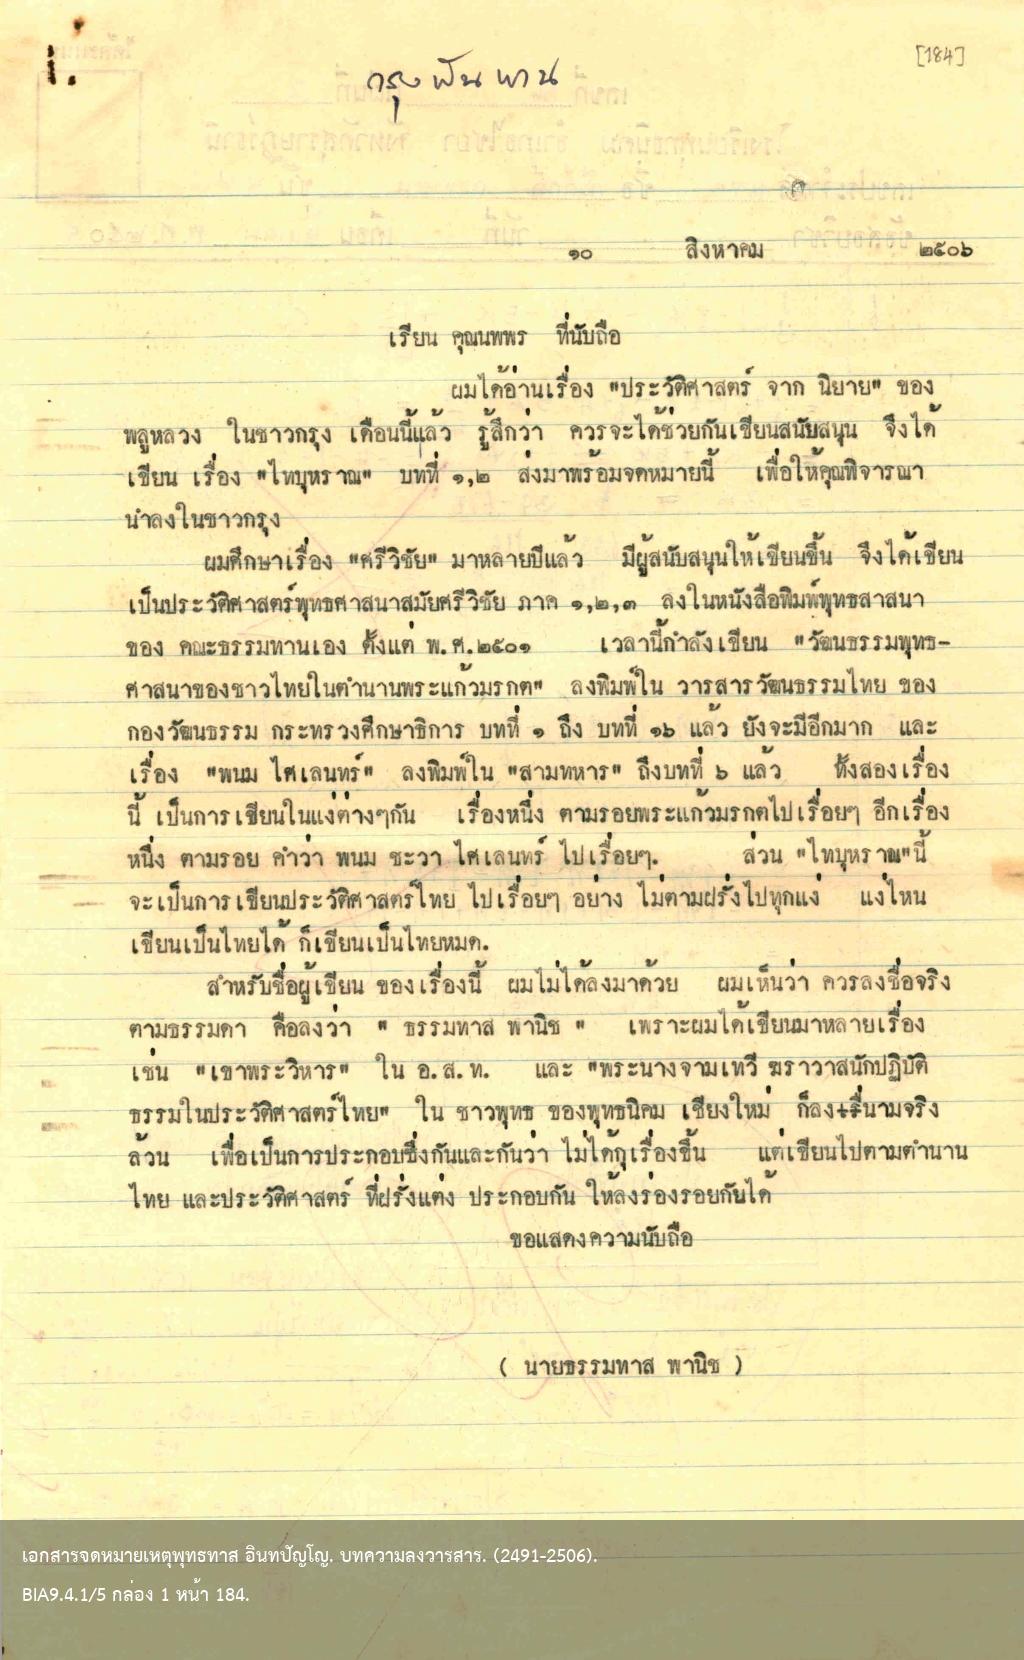 [184]
กรุงพันพาน
๑๐ สิงหาคม ๒๕๐๖
เรียน คุณนพพร ที่นับถือ
ผมได้อ่านเรื่อง "ประวัติศาสตร์ จาก นิยาย" ของ
พลูหลวง ในชาวกรุง เดือนนี้แล้ว รู้สึกว่า ควรจะได้ช่วยกันเขียนสนับสนุน จึงได้
เขียน เรื่อง "ไทบุหราณ" บทที่ ๑,๒ ส่งมาพร้อมจดหมายนี้ เพื่อให้คุณพิจารณา
นำลงในชาวกรุง
ผมศึกษาเรื่อง "ศรีวิชัย" มาหลายปีแล้ว มีผู้สนับสนุนให้เขียนขึ้น จึงได้เขียน
เป็นประวัติศาสตร์พุทธศาสนาสมัยศรีวิชัย ภาค ๑,๒,๓ ลงในหนังสือพิมพ์พุทธสาสนา
ของ คณะธรรมทานเอง ตั้งแต่ พ.ศ.๒๕๐๑ เวลานี้กำลังเขียน "วัฒนธรรมพุทธ-
ศาสนาของชาวไทยในตำนานพระแก้วมรกต" ลงพิมพ์ใน วารสารวัฒนธรรมไทย ของ
กองวัฒนธรรม กระทรวงศึกษาธิการ บทที่ ๑ ถึง บทที่ ๑๖ แล้ว ยังจะมีอีกมาก และ
เรื่อง "พนม ไศเลนทร์" ลงพิมพ์ใน "สามทหาร" ถึงบทที่ ๖ แล้ว ทั้งสองเรื่อง
นี้ เป็นการเขียนในแง่ต่างๆกัน เรื่องหนึ่ง ตามรอยพระแก้วมรกตไปเรื่อยๆ อีกเรื่อง
หนึ่ง ตามรอย คำว่า พนม ชะวา ไศเลนทร์ ไปเรื่อยๆ. ส่วน "ไทบุหราณ"นี้
จะเป็นการเขียนประวัติศาสตร์ไทย ไปเรื่อยๆ อย่าง ไม่ตามฝรั่งไปทุกแง่ แง่ไหน
เขียนเป็นไทยได้ ก็เขียนเป็นไทยหมด.
สำหรับชื่อผู้เขียน ของเรื่องนี้ ผมไม่ได้ลงมาด้วย ผมเห็นว่า ควรลงชื่อจริง
ตามธรรมดา คือลงว่า " ธรรมทาส พานิช " เพราะผมได้เขียนมาหลายเรื่อง
เช่น "เขาพระวิหาร" ใน อ.ส.ท. และ "พระนางจามเทวี ฆราวาสนักปฏิบัติ
ธรรมในประวัติศาสตร์ไทย" ใน ชาวพุทธ ของพุทธนิคม เชียงใหม่ ก็ลงนามจริง
ล้วน เพื่อเป็นการประกอบซึ่งกันและกันว่า ไม่ได้กุเรื่องขึ้น แต่เขียนไปตามตำนาน
ไทย และประวัติศาสตร์ ที่ฝรั่งแต่ง ประกอบกัน ให้ลงร่องรอยกันได้
ขอแสดงความนับถือ
( นายธรรมทาส พานิช )
เอกสารจดหมายเหตุพุทธทาส อินทปัญโญ. บทความลงวารสาร. (2491-2506).
BIA9.4.1/5 กล่อง 1 หน้า 184.